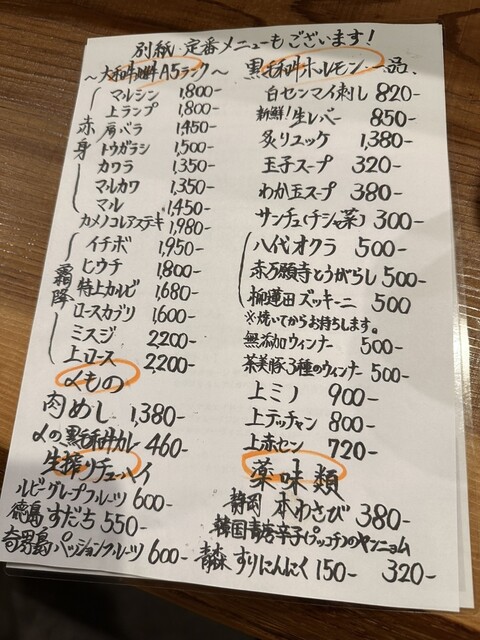 別紙・定番メニューもございます！
～大和牛雌牛A5ランク～
赤身
マルシン 1,800-
上ランプ 1,800-
肩バラ 1,450-
トウガラシ 1,500-
カワラ 1,350-
マルカワ 1,350-
マル 1,450-
カメノコレアステキ 1,980-
霜降
イチボ 1,950-
ヒウチ 1,800-
特上カルビ 1,680-
ロースカブリ 1,600-
ミスジ 2,200-
上ロース 2,200-
〆もの
肉めし 1,380-
〆の黒毛和牛カレー 460-
生搾りチューハイ
ルビーグレープフルーツ 600-
徳島すだち 550-
奄美島パッションフルーツ 600-
黒毛和牛ホルモン・一品
白センマイ刺し 820-
新鮮！生レバー 850-
炙りユッケ 1,380-
玉子スープ 320-
わか玉スープ 380-
サンチュ(チシャ菜) 300-
八代オクラ 500-
赤万願寺とうがらし 500-
柳蓮田ズッキーニ 500
※焼いてからお持ちします。
無添加ウィンナー 500-
茶美豚3種のウィンナー 500-
上ミノ 900-
上テッチャン 800-
上赤セン 720-
薬味類
静岡 本わさび 380-
韓国青唐辛子(プッコチ)のヤンニョム
320-
青森 すりにんにく 150-